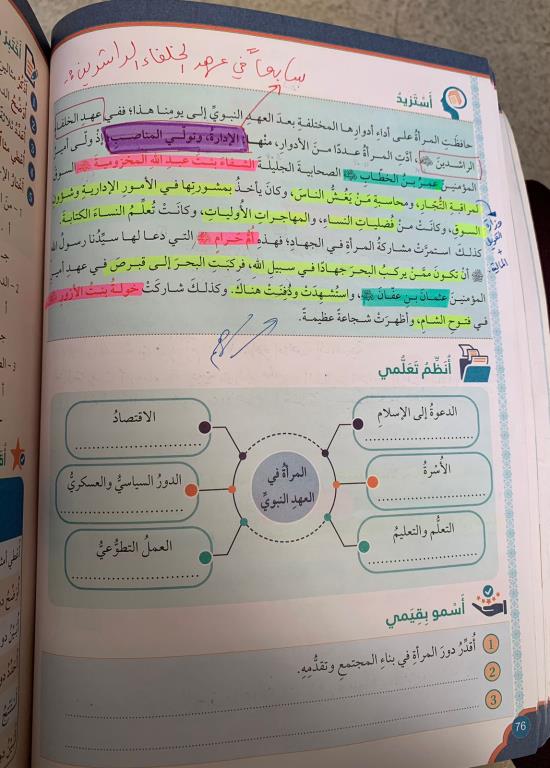 سابعاً في عهد الخلفاء الراشدين :
أَسْتَزيدُ
حافظَتِ المرأةُ على أداءِ أدوارِها المختلفةِ بعدَ العهدِ النبويِّ إلى يومِنا هذا؛ ففي عهدِ الخلفاءِ
الراشدينَ، أدَّتِ المرأةُ عددًا منَ الأدوارِ، منْها: الإدارةُ، وتولّي المناصبِ؛ إذْ ولّى أميرُ
المؤمنينَ عمرُ بنُ الخطّابِ الصحابيةَ الجليلةَ الشفاءَ بنتَ عبدِ اللهِ المخزوميةَ السوقَ
لمراقبةِ التُّجّارِ، ومحاسبةِ مَنْ يَغُشُّ الناسَ، وكانَ يأخذُ بمشورتِها في الأمورِ الإداريةِ وشؤونِ
السوقِ، وكانَتْ منْ فُضلياتِ النساءِ، والمهاجراتِ الأُولياتِ، وكانَتْ تُعلِّمُ النساءَ الكتابةَ.
كذلكَ استمرَّتْ مشاركةُ المرأةِ في الجهادِ؛ فهذهِ أمُّ حَرامٍ التي دعا لها سيِّدُنا رسولُ اللهِ
أنْ تكونَ ممَّنْ يركبُ البحرَ جهادًا في سبيلِ اللهِ، فركبَتِ البحرَ إلى قبرصَ في عهدِ أميرِ
المؤمنينَ عثمانَ بنِ عفّانَ، واستُشهِدَتْ ودُفِنَتْ هناكَ. وكذلكَ شاركَتْ خولةُ بنتُ الأزورِ
في فتوحِ الشامِ، وأظهرَتْ شجاعةً عظيمةً.
أُنَظِّمُ تَعَلُّمي
المرأةُ في
العهدِ النبويِّ
الدعوةُ إلى الإسلامِ
الاقتصادُ
الأُسْرةُ
الدورُ السياسيُّ والعسكريُّ
التعلُّم والتعليمُ
العملُ التطوُّعيُّ
أَسْمو بِقِيَمي
1 أُقدِّرُ دورَ المرأةِ في بناءِ المجتمعِ وتقدُّمِهِ.
2
3
76